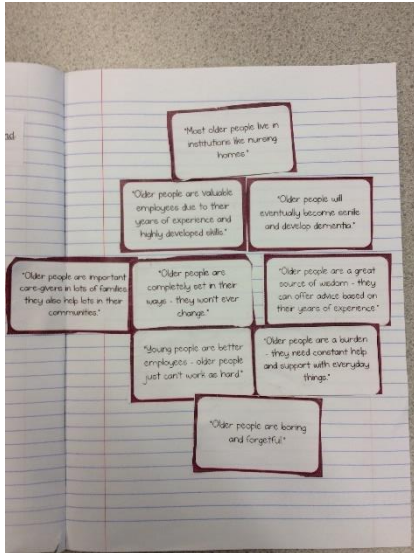 "Most older people live in
institutions like nursing
homes."
"Older people are valuable
employees due to their
years of experience and
highly developed skills."
"Older people will
eventually become senile
and develop dementia."
"Older people are important
care-givers in lots of families
they also help lots in their
communities."
"Older people are
completely set in their
ways - they won't ever
change."
"Older people are a great
source of wisdom - they
can offer advice based on
their years of experience."
"Young people are better
employees - older people
just can't work as hard."
"Older people are a burden
- they need constant help
and support with everyday
things."
"Older people are boring
and forgetful."